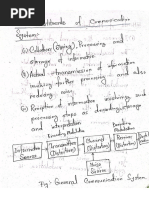 of Communication
System:-
(a) Collection (Coding), Processing and
storage of information
(b) Actual transmission of information
involving further processing and also
reducing noise
(c) Reception of information involving
processing steps as decoding, storage
and interpretation
Encoding Modulation
Decoding Demodulation
Information Source
Transmitter (Distortion)
Channel (Distortion)
Receiver (Distortion)
Noise Source
Fig:- General Communication System.